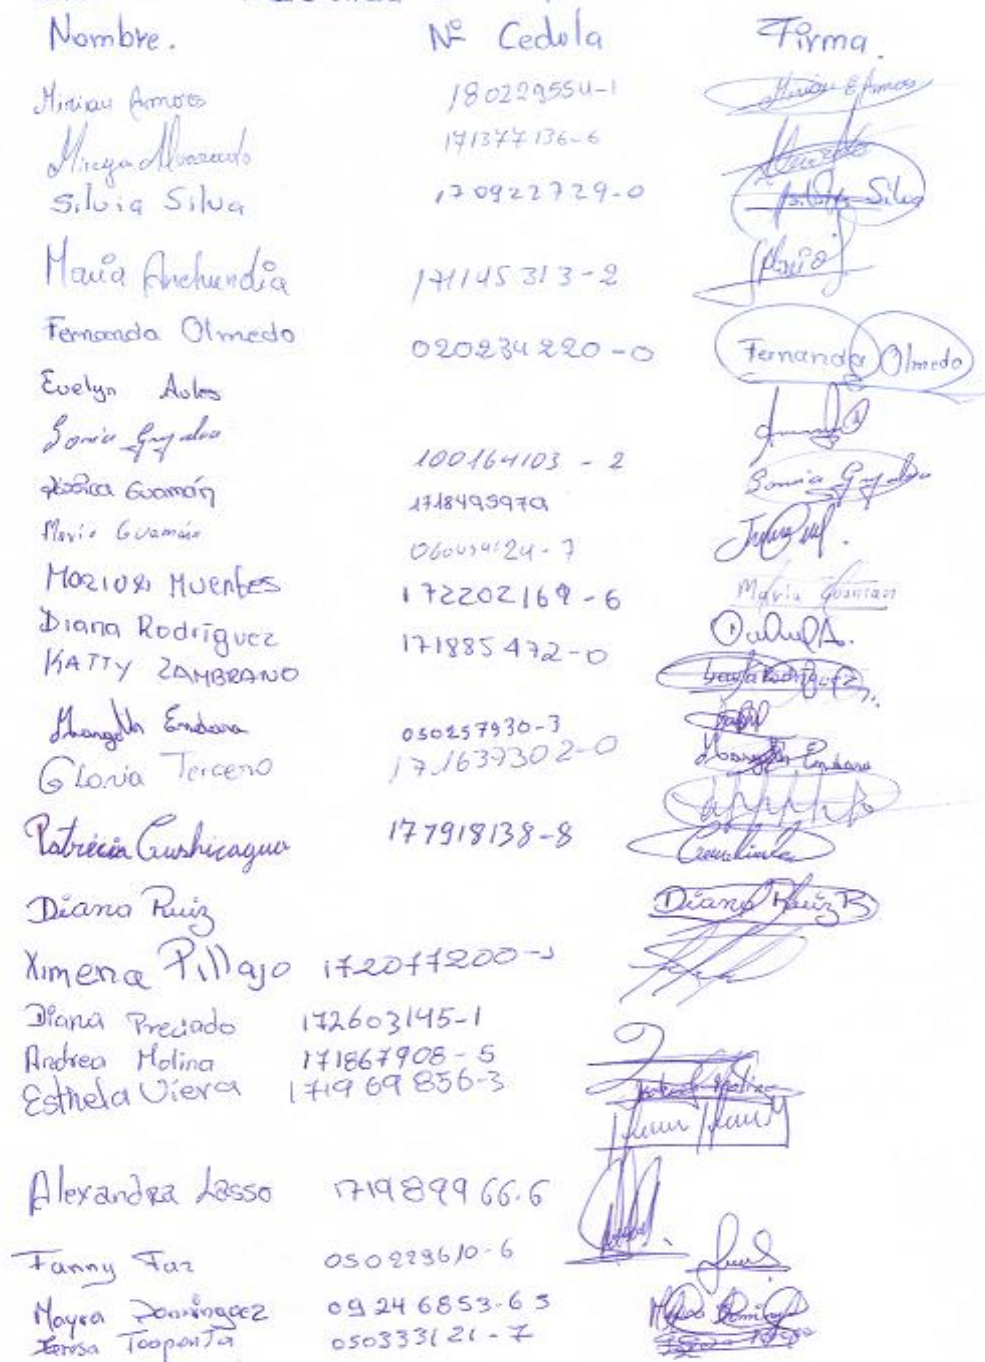 Nombre. Nº Cedula Firma.
Miriam Amores 180229554-1 Miriam E Amores
Mireya Alvarado 171377136-6
Silvia Silva 170922729-0 Silva
Maria Anchundia 171145313-2 Maria
Fernanda Olmedo 020234220-0 Fernanda Olmedo
Evelyn Aviles
Sonia Grijalva 100164103-2 Sonia Grijalva
Jessica Guamán 1718495979
Maria Guamán 060434124-7 Maria Guaman
Mariuxi Muentes 172202169-6
Diana Rodríguez 171885472-0
KATTY ZAMBRANO
Endara 050257930-3 Endara
Gloria Tercero 171637302-0
Patricia Cushicagua 177918138-8
Diana Ruiz Diana Ruiz B
Ximena Pillajo 172077200-1
Diana Preciado 172603145-1
Andrea Molina 171867908-5 Molina
Esthela Viera 171969856-3
Alexandra Lasso 171989966-6
Fanny Faz 050229610-6
Mayra Dominguez 09246853-65
Teresa Toapanta 050333121-7